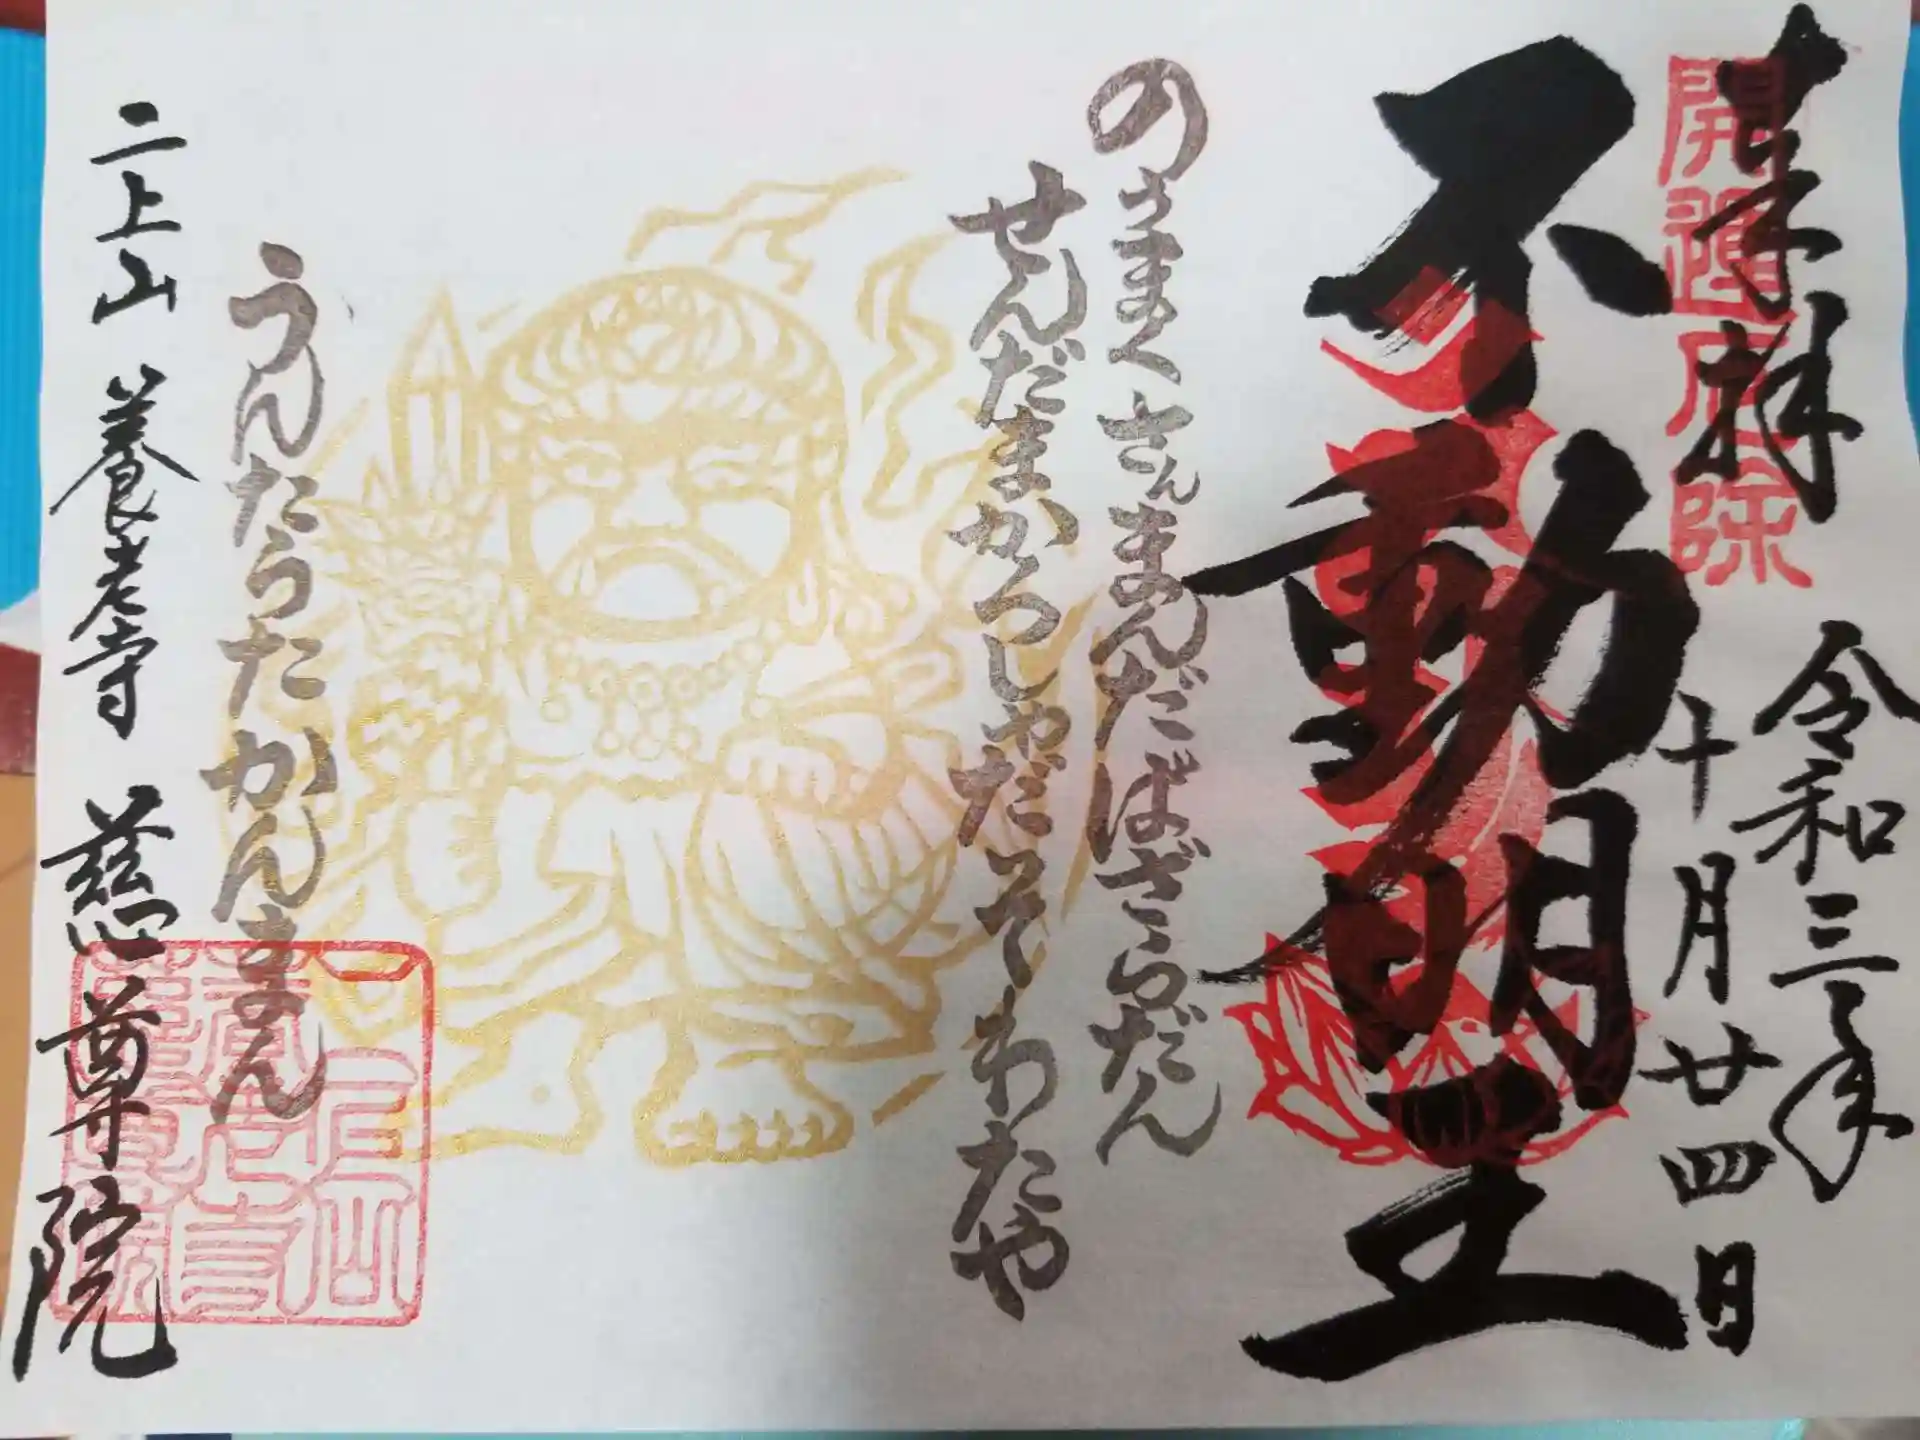 奉拝
令和三年
十月廿四日
不動明王
のうまくさんまんだばざらだん
せんだまかろしゃだそわたや
うんたらたかんまん
二上山 養老寺 慈尊院